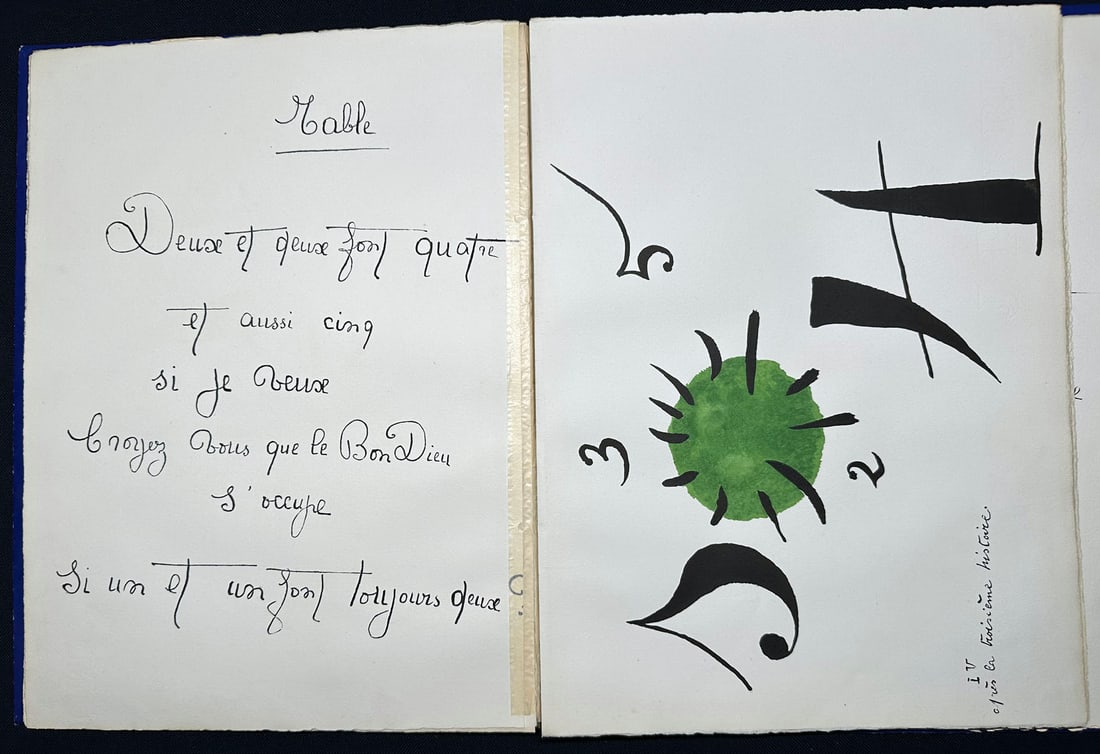 Table
Deux et deux font quatre
et aussi cinq
si je veux
Croyez vous que le Bon Dieu
s'occupe
si un et un font toujours deux ?
5
4 1
3
2
2
IV
après la troisième histoire.